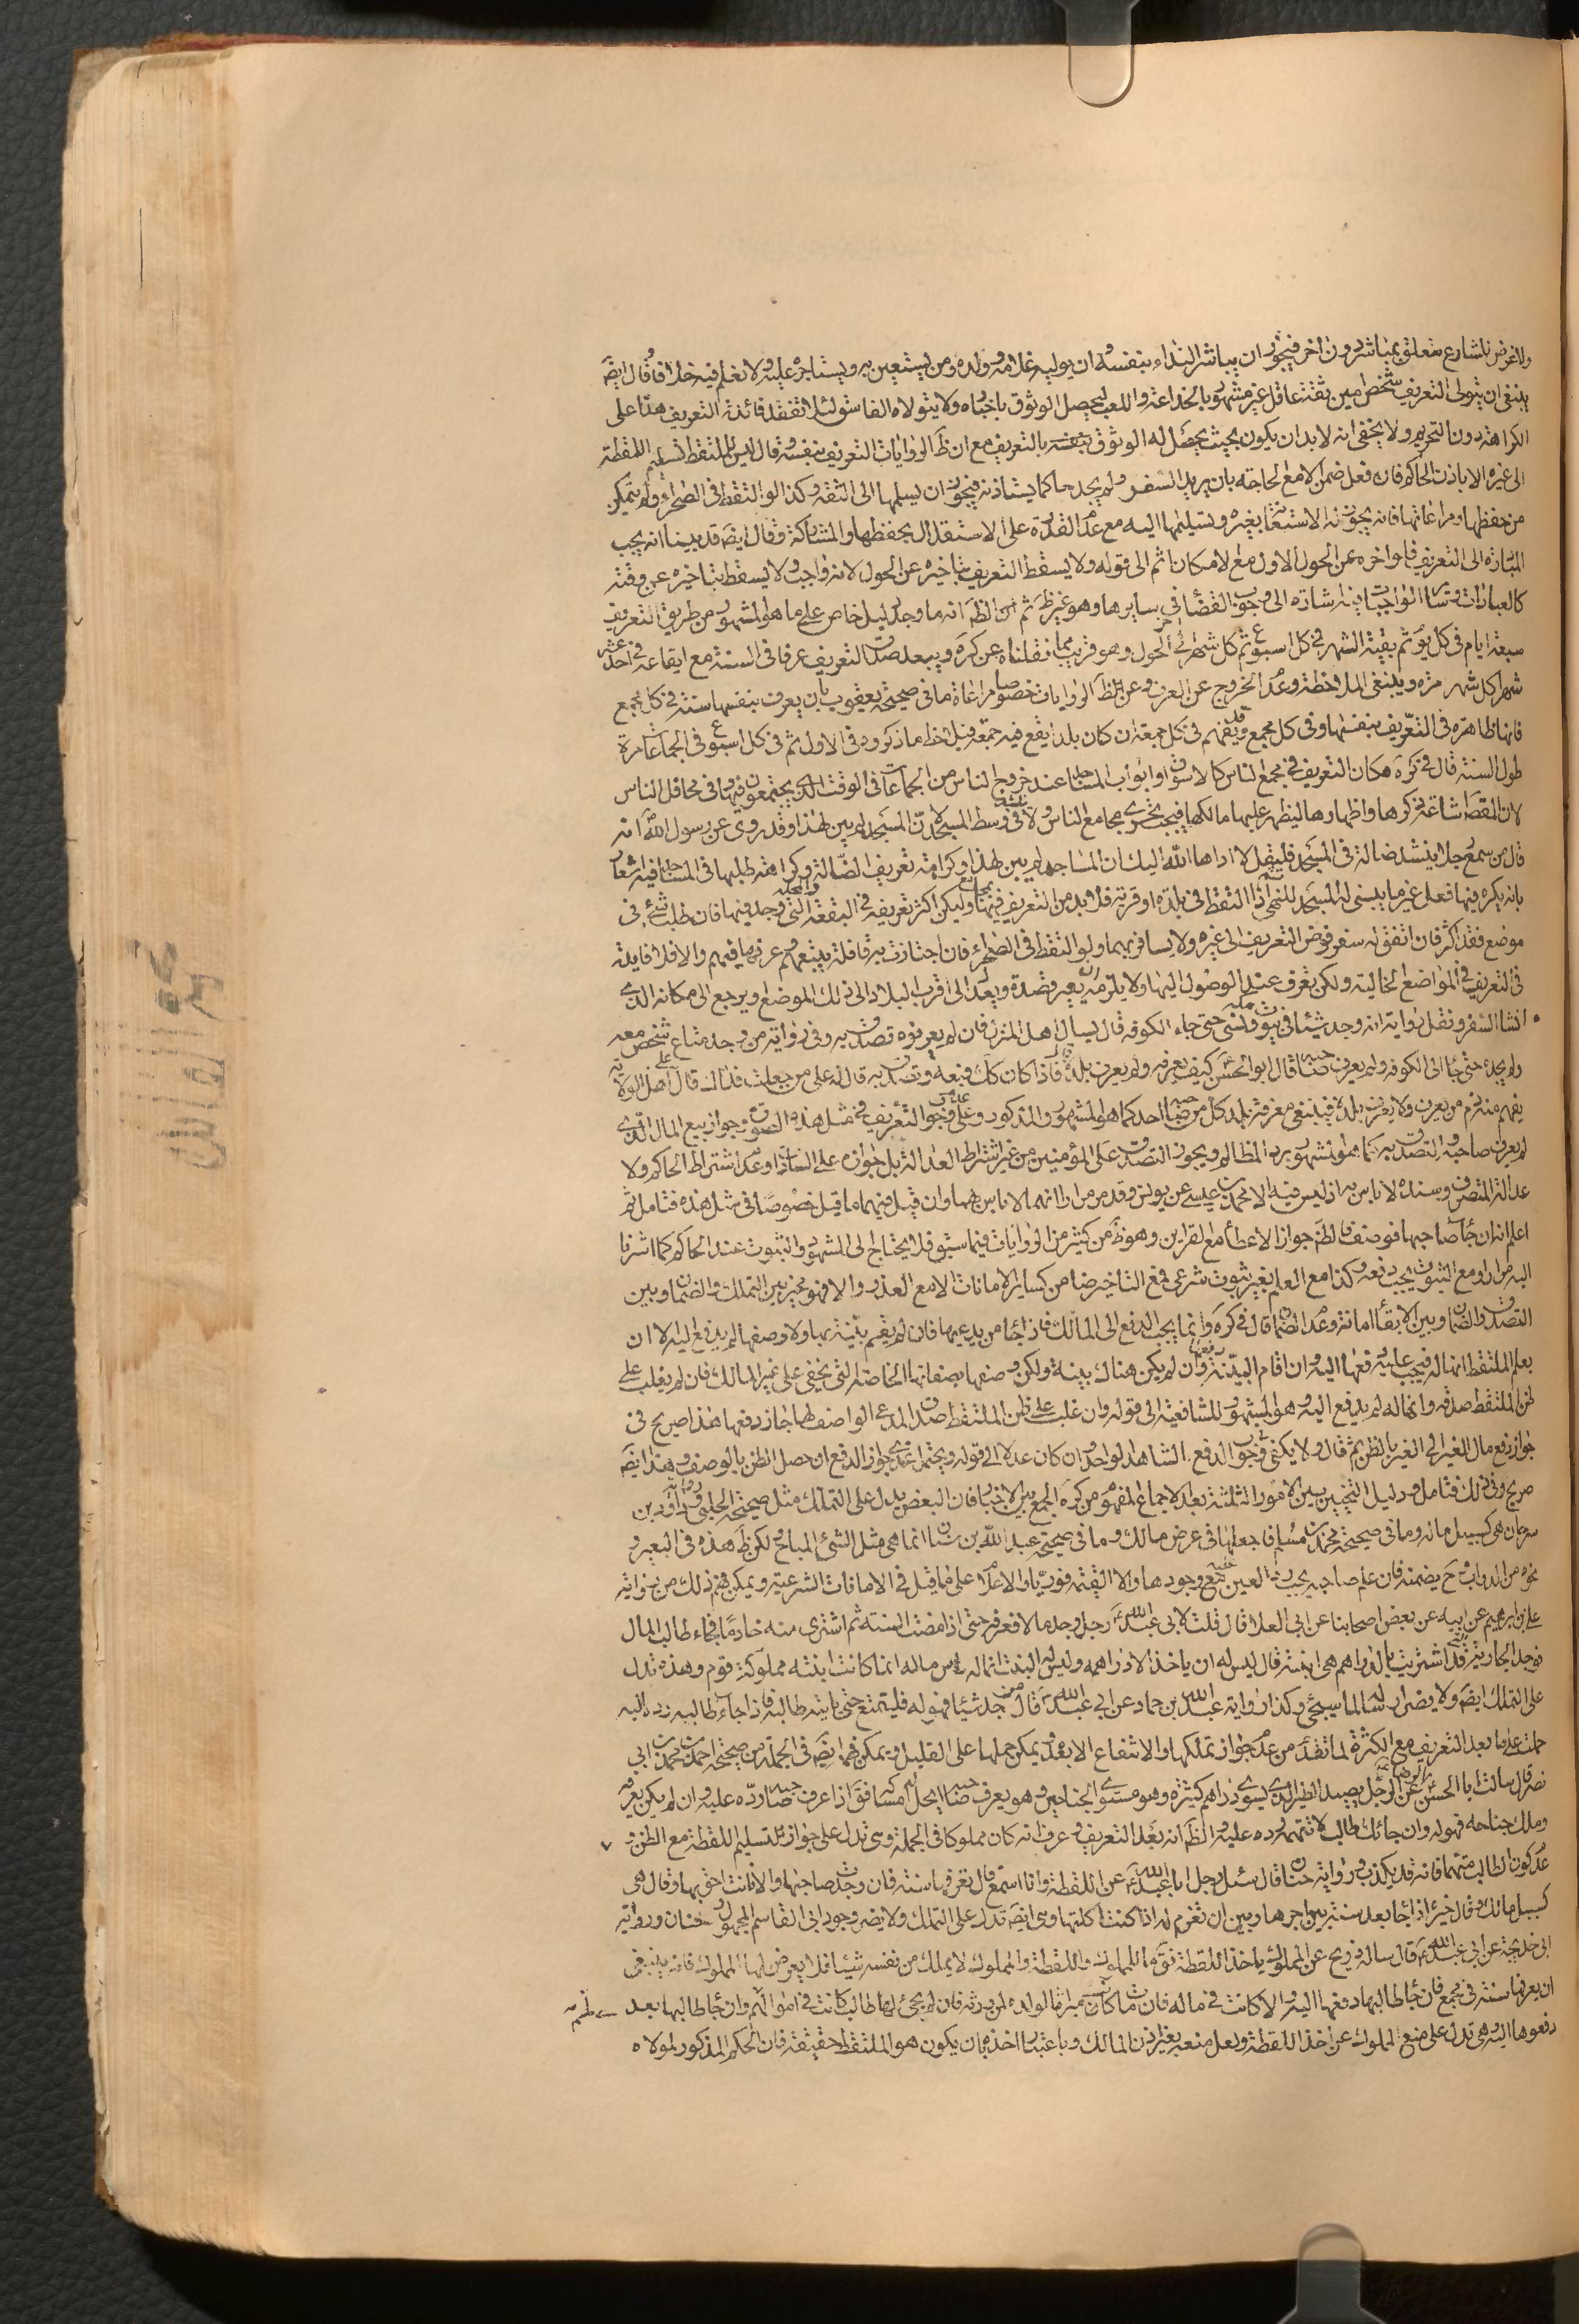 ولا غرض للشارع متعلق بمباشر دون اخر فيجوز ان يباشر النداء بنفسه وان يوليه غلامه وولده ومن يستعين به ويستاجره عليه ولا نعلم فيه خلافا وقال ايضَ
ينبغي ان يتولى التعريف شخص امين ثقة عاقل غير مشهور بالخداعة واللعب ليحصل الوثوق باخباره ولا يتولاه الفاسق لئلا تفقد فائدة التعريف هذا على
الكراهة دون التحريم ولا يخفى انه لا بد ان يكون بحيث يحصل له الوثوق بالتعريف مع ان ظَ الروايات التعريف بنفسه وقال ليس للملتقط تسليم اللقطة
الى غيره الا باذن الحاكم فان فعل ضمن الا مع الحاجة بان يريد السفر ولم يجد حاكما يستاذنه فيجوز ان يسلمها الى الثقة وكذا لو التقط في الصحراء ولم يتمكن
من حفظها ومراعاتها فانه يجوز له الاستعانة بغيره وتسليمها اليه مع عدم القدرة على الاستقلال بحفظها والمشاركة وقال ايضَ قد بينا انه يجب
المبادرة الى التعريف فلو اخره عن الحول الاول مع الامكان اثم الى قوله ولا يسقط التعريف بتاخيره عن الحول لانه واجب ولا يسقط بتاخيره عن وقته
كالعبادات وساير الواجبات فيه اشارة الى وجوب القضاء في سايرها وهو غير ظَ ثم ان الظَ انه ما وجد دليل خاص على ما هو المشهور من طريق التعريف
سبعة ايام في كل يوم ثم بقية الشهر في كل اسبوع ثم كل شهر الى اخر الحول وهو قريب مما نقلناه عن كره ويبعد صدق التعريف عرفا في السنة مع ايقاعه في احد عشر
شهرا كل شهر مرة وينبغي الملاحظة وعدم الخروج عن العرف وعن ظَ الروايات خصوصا مراعاة ما في صحيحة يعقوب بان يعرف بنفسها سنة في كل مجمع
فانها ظاهرة في التعريف بنفسها وفي كل مجمع وقد يفهم في كل جمعة ان كان بلدا يقع فيه جمعة فبلاحظ ما ذكروه في الاول ثم في كل اسبوع في الجماعات مرة
طول السنة قال في كره مكان التعريف في مجمع الناس كالاسواق او ابواب المساجد عند خروج الناس من الجماعات في الوقت الذي يجتمعون فيه وفي محافل الناس
لان المقصَ اشاعة ذكرها واظهارها ليظهر عليها مالكها فيجب تحري مجامع الناس ولا ينشد في وسط المسجد لان المسجد لم يبن لهذا وقد روي عن رسول الله انه
قال من سمع رجلا ينشد ضالة في المسجد فليقل لا اداها الله اليك ان المساجد لم يبن لهذا وكراهة تعريف الضالة وكراهة طلبها في المساجد فيه اشعار
بانه يكره فيها فعل غير ما يبنى له المسجد للنهي اذا التقط في بلدة او قرية فلا بد من التعريف فيهما وليكن اكثر تعريفه في البقعة التي وجد فيها فان طلب شئ في
موضع فقده اكثر فان اتفق له سفر فوض التعريف الى غيره ولا يسافر بها ولو التقط في الصحراء فان اجتازت به قافلة يتبعهم وعرفها فيهم والا فلا فايدة
في التعريف في المواضع الخالية ولكن يعرف عند الوصول اليها ولا يلزمه ان يغير قصده ويعدل الى اقرب البلاد الى ذلك الموضع او يرجع الى مكانه الذي
انشأ السفر ونقل رواية انه وجد شيئا في بيوت مكة ونسى حتى جاء الكوفة قال يسال اهل المنزل فان لم يعرفوه تصدق به وفي رواية من وجد متاع شخص معه
ولم يجده حتى جاء الى الكوفة ولم يعرف صاحبه قال ابو الحسن كيف يعرفه ولم يعرف بلده قال اذا كان كك فبعه وتصدق به قال له على من جعلت فداك قال على اهل الولاية
يفهم منه لزوم من يعرف ولا يعرف بلده فينبغي معرفة بلد كل من صاحبه احد كما هو المشهور والمذكور وعلى عدم وجوب التعريف في مثل هذه الصورة وجواز بيع المال الذي
لم يعرف صاحبه والتصدق به كما هو المشهور برد المظالم ويجوز التصدق على المؤمنين من غير اشتراط العدالة بل جوازه على السادات وعدم اشتراط الحاكم ولا
عدالة المتصرف وسنده لا باس به اذ ليس فيه الا محمد بن عيسى عن يونس وقد مر مرارا انهما لا باس بهما وان قيل فيهما ما قيل خصوصا في مثل هذه فتامل ثم
اعلم انه ان جاء صاحبها فوصف فالظَ جواز الاعطاء مع القراين وهو ظَ من كثير من الروايات فيما سبق فلا يحتاج الى الشهود والثبوت عند الحاكم كما اشرنا
اليه مرارا ومع الثبوت يجب دفعه وكذا مع العلم بغير ثبوت شرعي فمع التاخير ضامن كساير الامانات الا مع العذر والا فهو مخير بين التملك والضمان وبين
التصدق والضمان وبين الابقاء امانة وعدم الضمان قال في كره وانما يجب الدفع الى المالك فاذا جاء من يدعيها فان لم يقم بينة بها ولا وصفها لم يدفع اليه الا ان
يعلم الملتقط انها له فيجب عليه دفعها اليه وان اقام البينة دفعها وان لم يكن هناك بينة ولكن وصفها بصفاتها الخاصة التي يخفى على غير المالك فان لم يغلب على
ظن الملتقط صدقه وانها له لم يدفع اليه وهو المشهور للشافعية الى قوله وان غلب على ظن الملتقط صدق المدعي الواصف لها جاز دفعها هذا صريح في
جواز دفع مال الغير الى الغير بالظن ثم قال ولا يكفي في وجوب الدفع الشاهد الواحد وان كان عدلا الى قوله ويحتمل عندي جواز الدفع ان حصل الظن بالوصف وهذا ايضَ
صريح في ذلك فتامل ودليل التخيير بين الامور الثلثة بعد الاجماع المفهوم من كره الجمع بين الاخبار فان البعض يدل على التملك مثل صحيحة الحلبي ورواية داود بن
سرحان هي كسبيل ماله وما في صحيحة محمد بن مسلم فاجعلها في عرض مالك وما في صحيحة عبد الله بن سنان انما هي مثل الشئ المباح لكن ظَ هذه في البعير و
نحوه من الدواب وح يضمنه فان علم صاحبه يجب رد العين عليه مع وجودها والا القيمة فوريا والاعلام على ما قيل في الامانات الشرعية ويمكن فهم ذلك من رواية
علي بن ابرهيم عن ابيه عن بعض اصحابنا عن ابي العلا قال قلت لابي عبد الله ع رجل وجد مالا فعرفه حتى اذا مضت السنة ثم اشترى منه خادما فجاء طالب المال
فوجد الجارية التي قد اشتريت بالدراهم هي ابنته قال ليس له ان ياخذ الا دراهمه وليس له البنت انما له راس ماله انما كانت ابنته مملوكة قوم وهذه تدل
على التملك ايضَ ولا يضر ارسالها لما سيجئ وكذا رواية عبد الله بن حماد عن ابي عبد الله ع قال من وجد شيئا فهو له فليتمتع حتى ياتيه طالبه فاذا جاء طالبه رده اليه
حملت على ما بعد التعريف مع الكثرة لما تقدم من عدم جواز تملكها والانتفاع الا بعده ويمكن حملها على القليل ويمكن فهمه ايضَ في الجملة من صحيحة احمد بن محمد بن ابي
نصر قال سالت ابا الحسن الرضا ع عن الرجل يصيد الطير الذي يسوى دراهم كثيرة وهو مستوى الجناحين وهو يعرف صاحبه ايحل له امساكه فقَ اذا عرف صاحبه رده عليه وان لم يكن يعرفه
وملك جناحه فهو له وان جائك طالب لا تتهمه رده عليه والظَ انه بعد التعريف وعرف انه كان مملوكا في الجملة وهي تدل على جواز تسليم اللقطة مع الظن و
عدم كون الطالب متهما فانه قد يكذب ورواية حنان قال سئل رجل ابا عبد الله ع عن اللقطة وانا اسمع قال تعرفها سنة فان وجدت صاحبها والا فانت احق بها وقال هي
كسبيل مالك وقال خيره اذا جاء بعد سنة بين اجرها وبين ان تغرم له اذا كنت اكلتها وهي ايضَ تدل على التملك ولا يضر وجود ابي القاسم المجهول وحنان ورواية
ابي خديجة عن ابي عبد الله ع قال ساله ذريح عن المملوك ياخذ اللقطة فقَ ما للمملوك واللقطة والمملوك لا يملك من نفسه شيئا فلا يعرض لها المملوك فانه ينبغي
ان يعرفها سنة في مجمع فان جاء طالبها دفعها اليه والا كانت في ماله فان مات كانت ميراثا لولده ولمن ورثه فان لم يجئ لها طالب كانت في اموالهم وان جاء طالبها بعد
دفعوها اليه وهي تدل على منع المملوك عن اخذ اللقطة ولعل منعه بغير اذن المالك وباعتبار اخذه بان يكون هو الملتقط حقيقة فان الحكم المذكور لمولاه